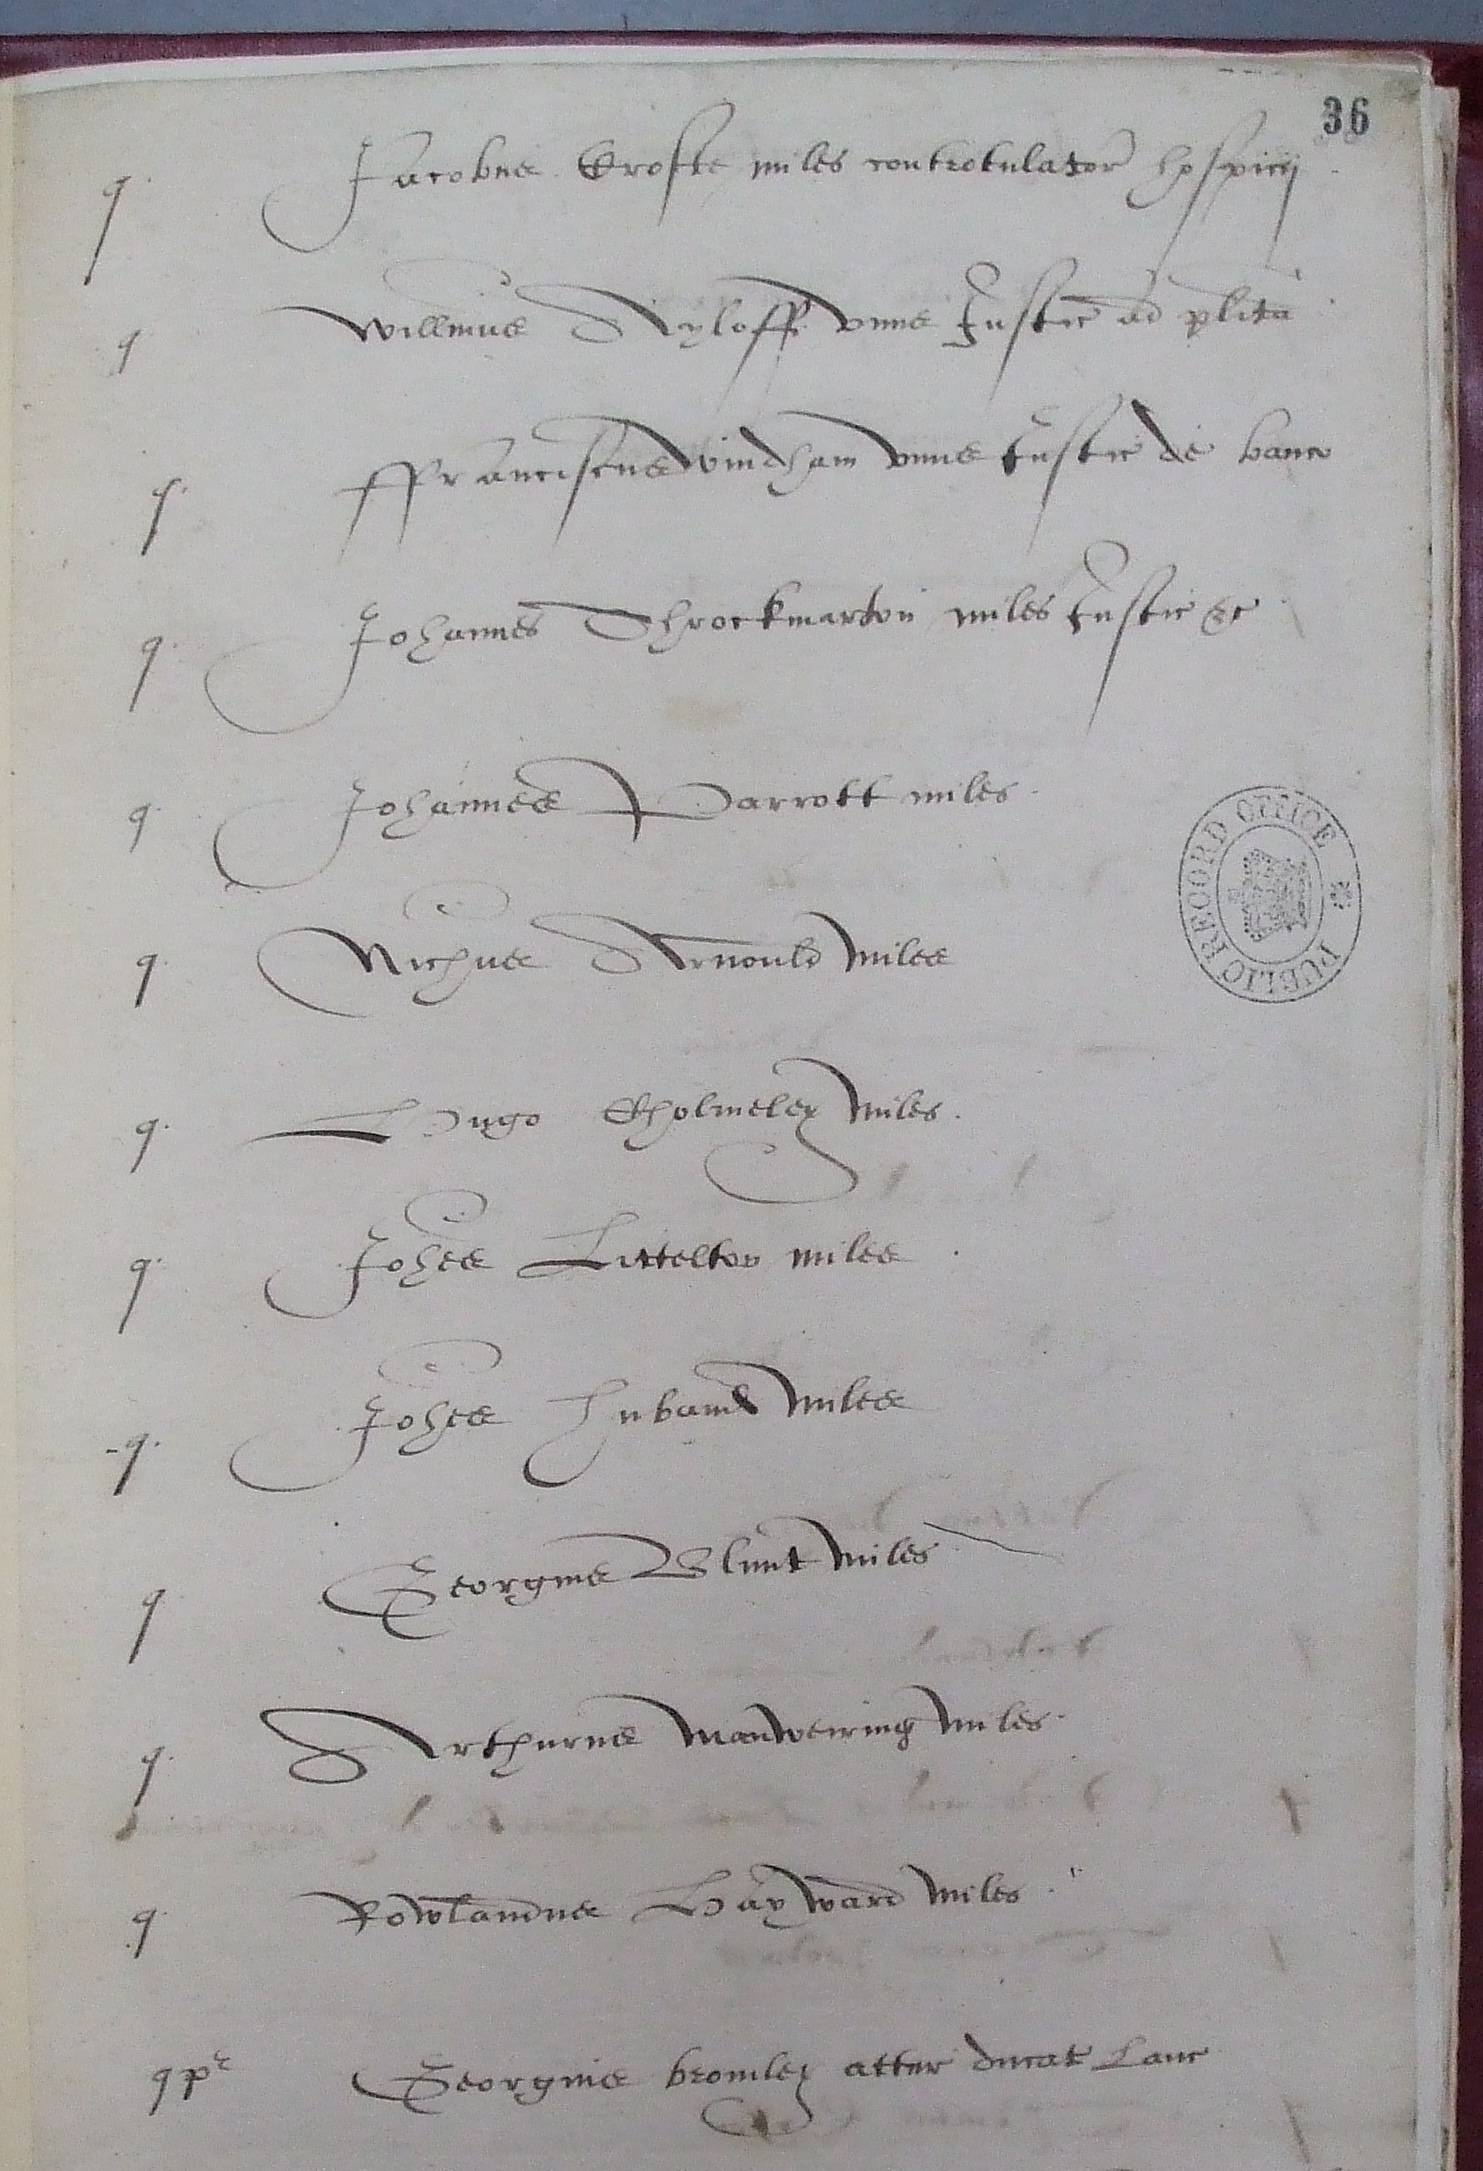 36
q. Jacobus Crofte miles controtulator hospicij
q Willmus Ayloff vnus Justic ad plita
q. ffranciscus Windham vnus Justic de banco
q. Johannes Throckmarton miles Justic &c
q. Johannes Parrott miles
q. Nichus Arnould miles
q. Hugo Cholmeley miles.
q. Johes Littelton miles
q. Johes Huband miles
q Georgius Blunt miles
q. Arthurus Manweiring miles.
q. Rowlandus Hayward miles.
q pc Georgius bromley attur ducat Lanc
PUBLIC RECORD OFFICE